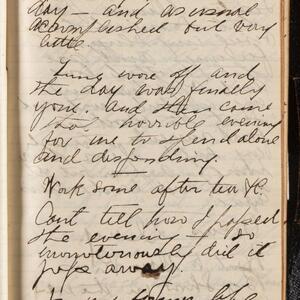 day — and as usual
accomplished but very
little.
Time wore off and
the day was finally
gone. and then come
the horrible evening
for me to spend alone
and desponding.
Work some after tea &c.
Cant tell how I passed
the evening — so
monotonously did it
pass away.